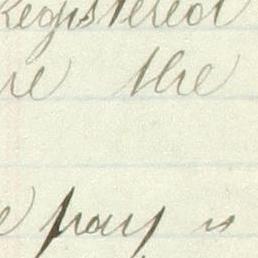 Registered
the
pay is